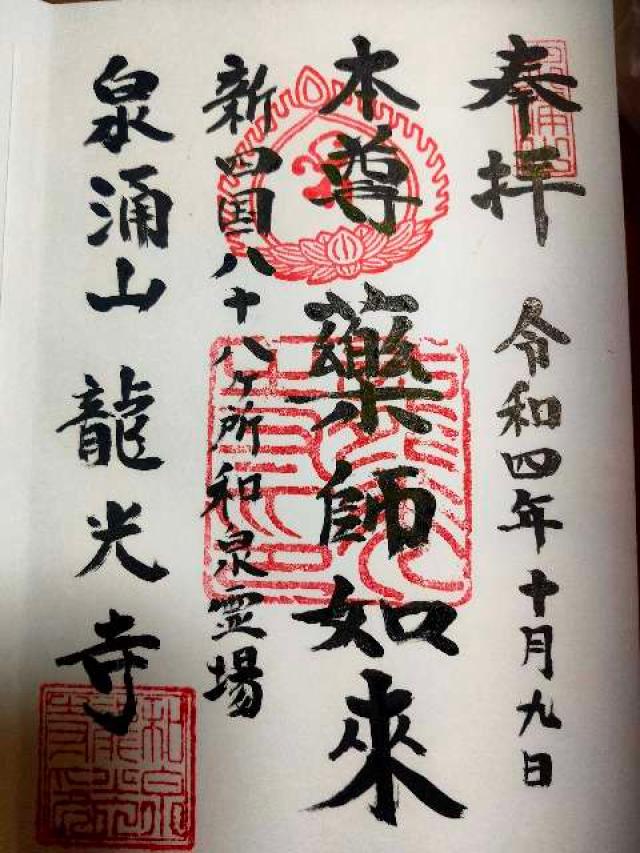 奉拝 令和四年十月九日
本尊 藥師如來
新四国八十八ヶ所和泉霊場
泉涌山 龍光寺